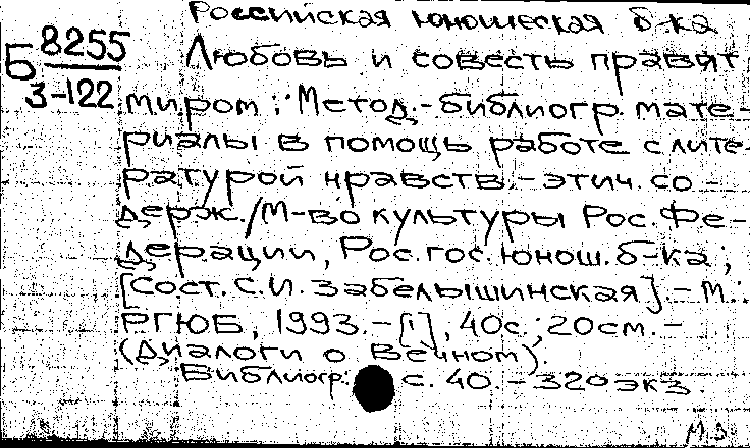 Российская юношеская б-ка
Б 8255
З-122
Любовь и совесть правят
миром: Метод.-библиогр. мате-
риалы в помощь работе с лите-
ратурой нравств.-этич. со-
держ./М-во культуры Рос. Фе-
дерации, Рос. гос. юнош. б-ка;
[Сост. С.И. Забелышинская].-М.:
РГЮБ, 1993.-[1], 40с.; 20см.-
(Диалоги о Вечном).
Библиогр.: с. 40.-320 экз.